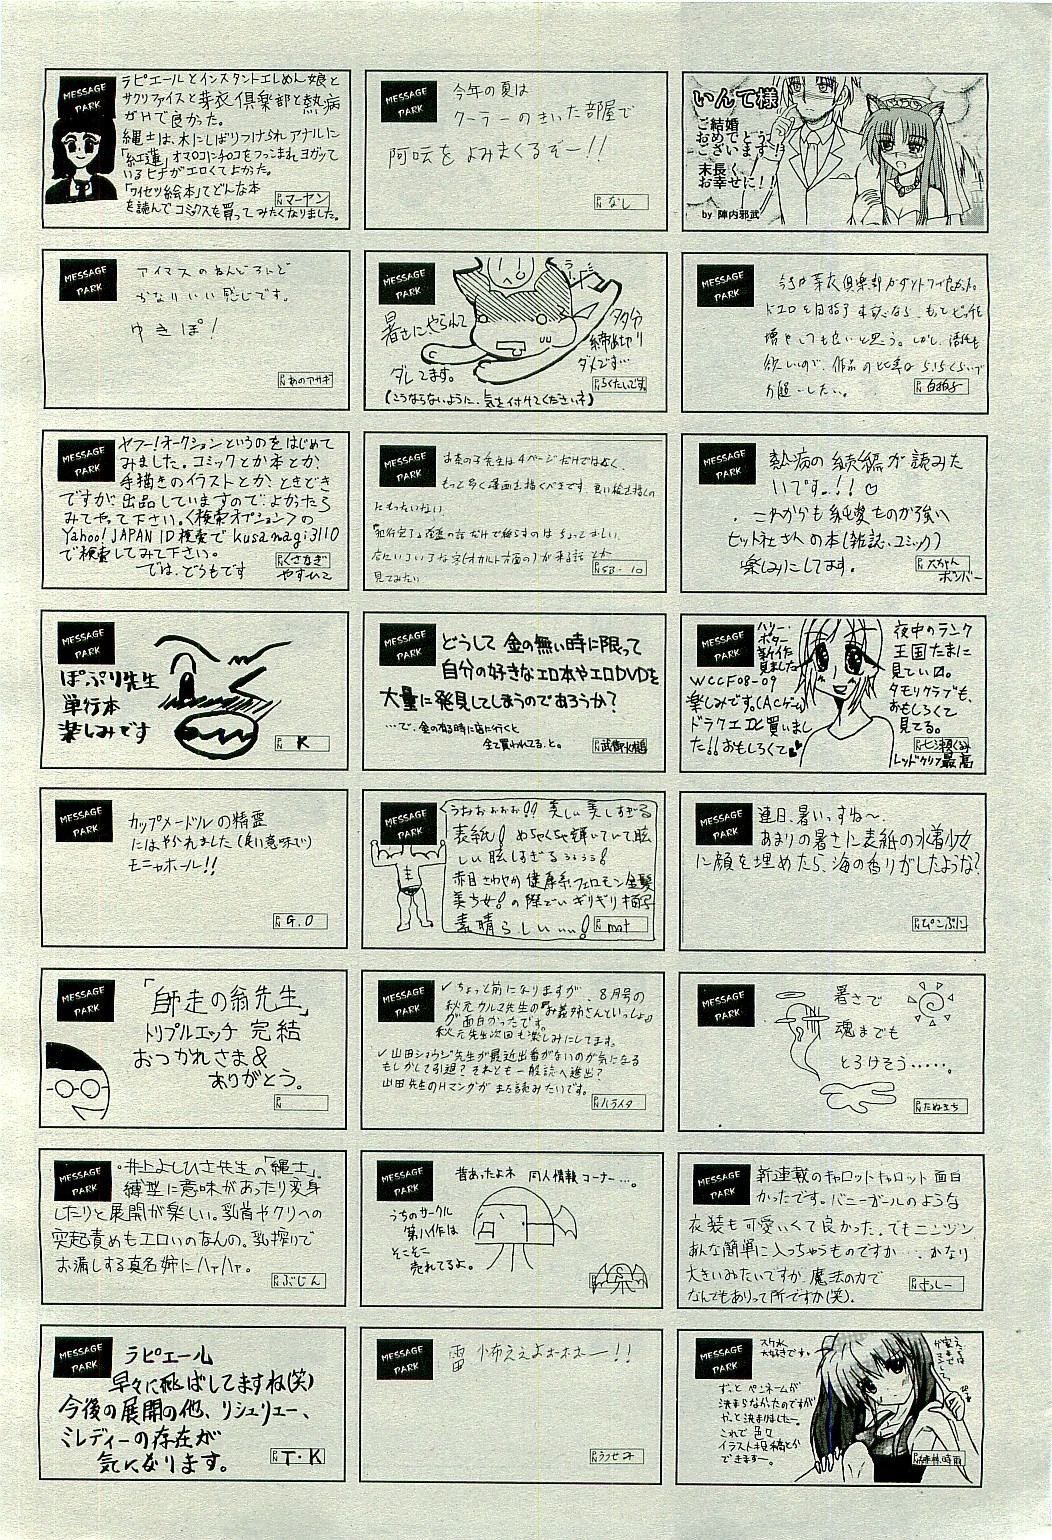 MESSAGE PARK
ラピエールとインスタントエレめん娘と
サクリファイスと芽衣倶楽部と熱病
がHで良かった。
縄士は、木にしばりつけられアナルに
「紅蓮」オマロにチロをつっこまれヨガって
いるヒナがエロくてよかった。
「ワイセツ絵本」てどんな本
を読んでコミックスを買ってみたくなりました。
P.N マーヤン
MESSAGE PARK
今年の夏は
クーラーのきいた部屋で
阿吽をよみまくるぞー!!
P.N なし
いんて様
ご結婚
おめでとう
ございます!
末長く
お幸せに!!
by 陣内邪武
MESSAGE PARK
アイマスのねんどろいど
かなりいい感じです。
ゆきぽ!
P.N あのアサギ
MESSAGE PARK
暑さにやられて
ダレてます。
(こうならないように、気を付けてくださいネ)
タタ分
締め切り
ダメです…
P.N らくたいです
MESSAGE PARK
増やしても良いと思う。しかし、
欲しいので、作品の比率は5:5くらいで
お願いしたい。
P.N 白拍子
MESSAGE PARK
ヤフー!オークションというのをはじめて
みました。コミックとか本とか、
手描きのイラストとか、ときどき
ですが、出品していますので、よかったら
みてやって下さい。〈検索オプション〉の
Yahoo! JAPAN ID検索で kusanagi3110
で検索してみて下さい。
では、どうもです
P.N くさなぎ
やすひこ
MESSAGE PARK
お茶の子先生は4ページだけではなく、
もっと多く漫画を描くべきです。良い絵を描くの
にもったいない。
見てみたい
P.N SB-10
MESSAGE PARK
熱病の続編が読みた
いです。!!♡
これからも純愛ものが強い
ヒット社さんの本(雑誌、コミック)
楽しみにしてます。
P.N 大ちゃん
ボンバー
MESSAGE PARK
ぽぷり先生
単行本
楽しみです
P.N K
MESSAGE PARK
どうして金の無い時に限って
自分の好きなエロ本やエロDVDを
大量に発見してしまうのであろうか?
…で、金の有る時に店に行くと
全て買われてる、と。
MESSAGE PARK
ハリー・
ポター
新作を
見ました
WCCF08-09
楽しみです。(ACゲーム)
ドラクエIXと買いまし
た!!おもしろくて
夜中のランク
王国たまに
見ている。
タモリクラブも、
おもしろくて
見てる。
P.N 七瀬くみ
レッドクリフ最高
MESSAGE PARK
カップメードルの精霊
にはやられました(良い意味で)
モニャホール!!
P.N G.O
MESSAGE PARK
うおおぉぉぉ!!美しい美しすぎる
表紙!めちゃくちゃ輝いていて眩
しい眩しすぎるぅぅぅぅ!
赤目さわやか健康系フェロモン金髪
美少女!の際どいギリギリ描写
素晴らしいぃぃ!
P.N mat
MESSAGE PARK
連日、暑いっすね〜、
あまりの暑さに表紙の水着少女
に顔を埋めたら、海の香りがしたような?
P.N ぴこぷに
MESSAGE PARK
「師走の翁先生」
トリプルエッチ 完結
おつかれさま&
ありがとう。
P.N
MESSAGE PARK
✓ちょっと前になりますが、8月号の
秋元カルマ先生の『お義姉さんといっしょ』
が面白かったです。
秋元先生次回も楽しみにしてます。
✓山田ショウジ先生が最近出番がないのが気になる
もしかして引退?それとも一般誌へ進出?
山田先生のHマンガがまた読みたいです。
P.N ハライタ
MESSAGE PARK
暑さで
魂までも
とろけそう・・・・・。
P.N たぬまち
MESSAGE PARK
・井上よしひさ先生の「縄士」。
縛型に意味があったり変身
したりと展開が楽しい。乳首やクリへの
突起責めもエロいのなんの。乳搾りで
お漏しする真名姉にハァハァ。
P.N ぶじん
MESSAGE PARK
昔あったよネ 同人情報コーナー…。
うちのサークル
第八作は
そこそこ
売れてるよ。
P.N
MESSAGE PARK
新連載のキャロットキャロット面白
かったです。バニーガールのような
衣装も可愛いくて良かった。でもニンジン
あんな簡単に入っちゃうものですか・・、かなり
大きいみたいですが、魔法の力で
なんでもありって所ですか(笑)。
P.N ホっしー
MESSAGE PARK
ラピエール
早々に飛ばしてますね(笑)
今後の展開の他、リシュリュー、
ミレディーの存在が
気になります。
P.N T・K
MESSAGE PARK
雷怖ええよォホホー!!
P.N うつせみ
MESSAGE PARK
スク水
大好きです。
ずっとペンネームが
決まらなかったのですが
やっと決まりましたー。
これで色々
イラスト投稿とか
できますー。